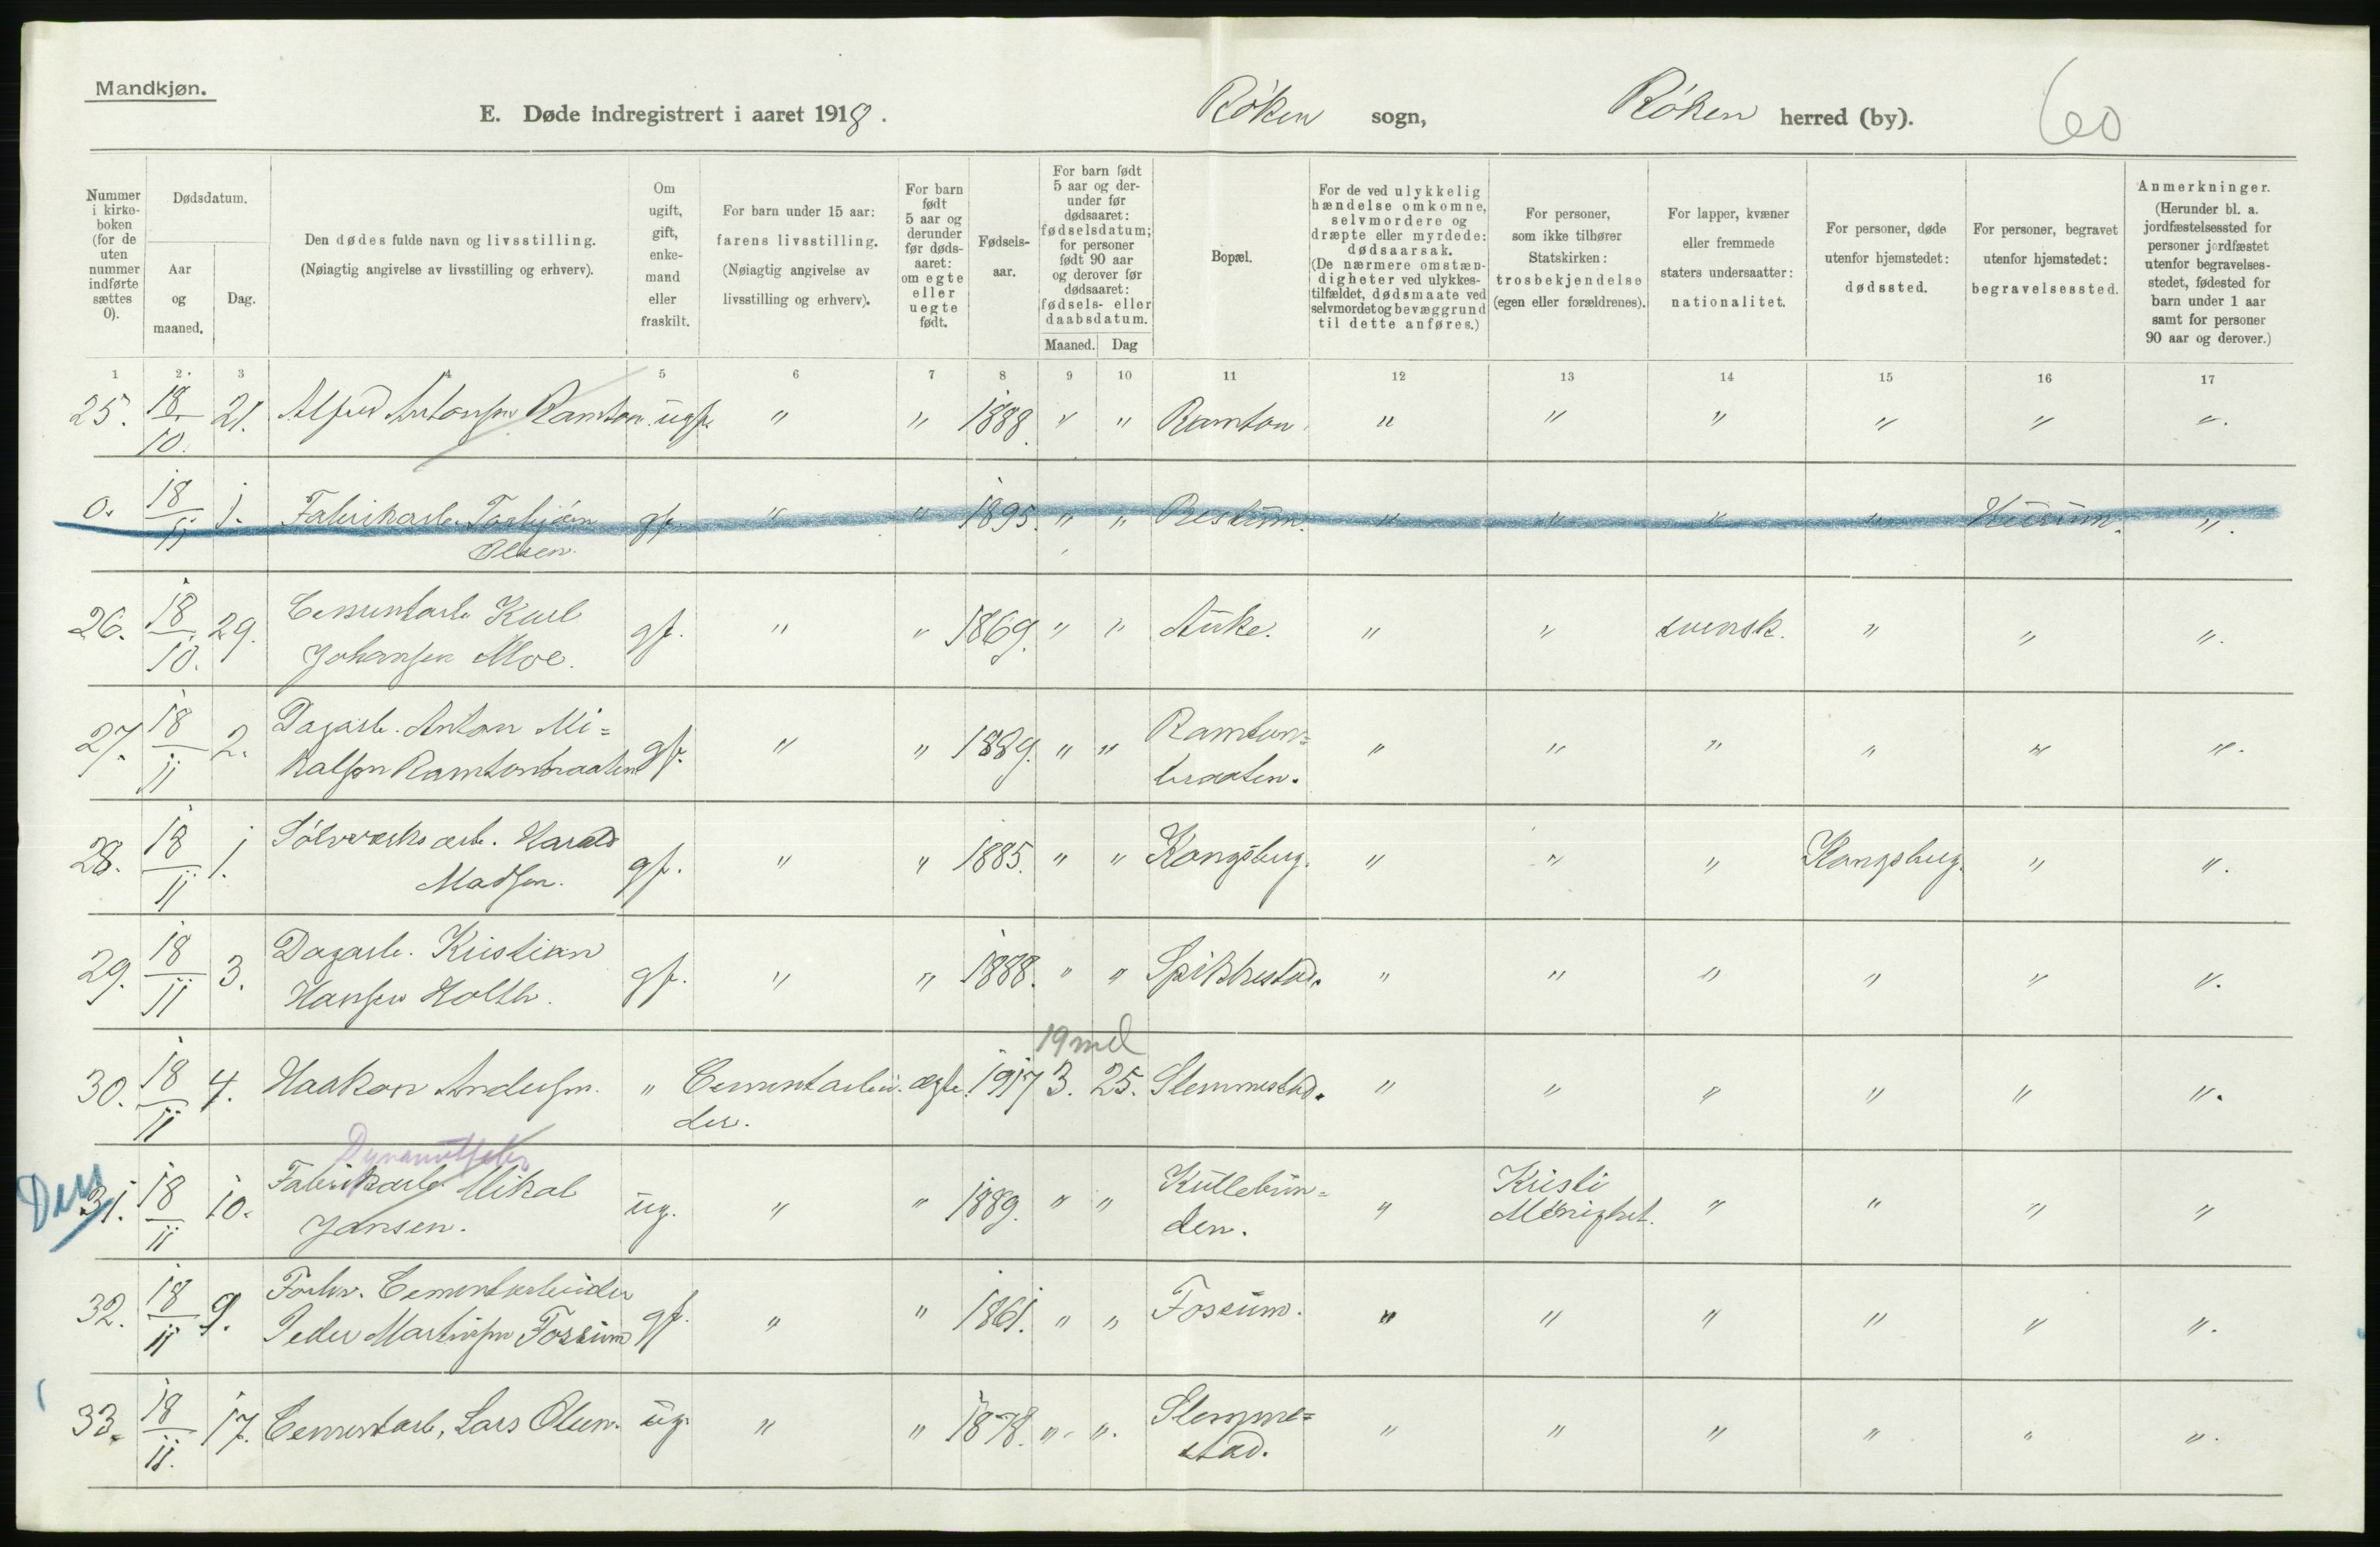 Mandkjøn.
E. Døde indregistrert i aaret 1918. Røken sogn, Røken herred (by). 60
Nummer i kirke-boken (for de uten nummer indførte sættes 0).
Dødsdatum.
Aar og maaned.
Dag.
Den dødes fulde navn og livsstilling.
(Nøiagtig angivelse av livsstilling og erhverv).
Om ugift, gift, enke-mand eller fraskilt.
For barn under 15 aar: farens livsstilling.
(Nøiagtig angivelse av livsstilling og erhverv).
For barn født 5 aar og derunder før døds-aaret: om egte eller uegte født.
Fødsels-aar.
For barn født 5 aar og der-under før dødsaaret: fødselsdatum; for personer født 90 aar og derover før dødsaaret: fødsels- eller daabsdatum.
Maaned. Dag
Bopæl.
For de ved ulykkelig hændelse omkomne, selvmordere og dræpte eller myrdede: dødsaarsak.
(De nærmere omstæn-digheter ved ulykkes-tilfældet, dødsmaate ved selvmordet og bevæggrund til dette anføres.)
For personer, som ikke tilhører Statskirken: trosbekjendelse (egen eller forældrenes).
For lapper, kvæner eller fremmede staters undersaatter: nationalitet.
For personer, døde utenfor hjemstedet: dødssted.
For personer, begravet utenfor hjemstedet: begravelsessted.
Anmerkninger.
(Herunder bl. a. jordfæstelsessted for personer jordfæstet utenfor begravelses-stedet, fødested for barn under 1 aar samt for personer 90 aar og derover.)
1 2. 3 4 5 6 7 8 9 10 11 12 13 14 15 16 17
25. 18/10. 21. Alfred Antonsen Ramton. ugf. " " 1888. " " Ramton. " " " " " ".
0. 18/11 1. Fabrikarb. Torbjørn Olsen. gf. " " 1895. " " Bestum. " " " " Hurum. ".
26. 18/10. 29. Cementarb. Karl Johansen Moe. gf. " " 1869. " " Auke. " " svensk. " " ".
27. 18/11 2. Dagarb. Anton Mi=kalsen Ramtonbraaten gf. " " 1889. " " Ramton=braaten. " " " " " ".
28. 18/11 1. Sølvverksarb. Harald Madsen. gf. " " 1885. " " Kongsberg. " " " Kongsberg. " ".
29. 18/11 3. Dagarb. Kristian Hansen Holth. gf. " " 1888. " " Spikkestad. " " " " " ".
19 md
30. 18/11 4. Haakon Andersen. " Cementarbei-der. ægte. 1917 3. 25. Slemmestad. " " " " " ".
Ders
31. 18/11 10. Fabrikarb. Mikal Jansen. ug. " " 1889. " " Kullebun=den. " Kristi Menighet. " " " "
32. 18/11 9. Forhv. Cementarbeider Peder Martinsen Fossum gf. " " 1861. " " Fossum. " " " " " ".
33. 18/11. 17. Cementarb. Lars Olsen. ug. " " 1878. " ". Slemme=stad. " " " " " ".